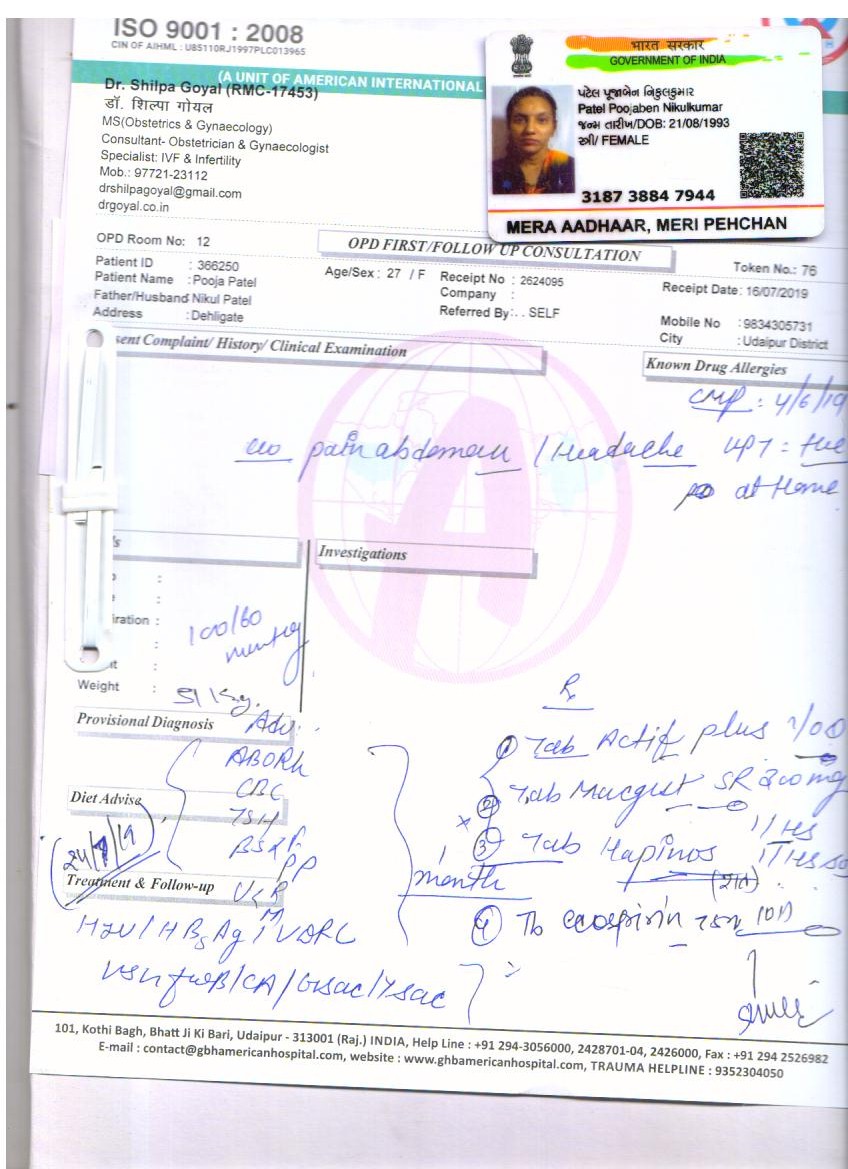 ISO 9001 : 2008
CIN OF AIHML : U85110RJ1997PLC013965
(A UNIT OF AMERICAN INTERNATIONAL
Dr. Shilpa Goyal (RMC-17453)
डॉ. शिल्पा गोयल
MS(Obstetrics & Gynaecology)
Consultant- Obstetrician & Gynaecologist
Specialist: IVF & Infertility
Mob.: 97721-23112
drshilpagoyal@gmail.com
drgoyal.co.in
भारत सरकार
GOVERNMENT OF INDIA
પટેલ પૂજાબેન નિકુલકુમાર
Patel Poojaben Nikulkumar
જન્મ તારીખ/DOB: 21/08/1993
સ્ત્રી/ FEMALE
3187 3884 7944
MERA AADHAAR, MERI PEHCHAN
OPD Room No: 12
OPD FIRST/FOLLOW UP CONSULTATION
Token No.: 76
Patient ID : 366250
Patient Name : Pooja Patel
Father/Husband Nikul Patel
Address : Dehligate
Age/Sex : 27 / F
Receipt No : 2624095
Company :
Referred By: . . SELF
Receipt Date: 16/07/2019
Mobile No : 9834305731
City : Udaipur District
sent Complaint/ History/ Clinical Examination
Known Drug Allergies
: 4/6/19
pain abdomen / Headache UPT = +ve
at Home
Investigations
iration :
100/60
mmHg
Weight : 51 Kg.
Rx
Provisional Diagnosis
Adv.
ABORh
CBC
TSH
BSR F
PP
Diet Advise
24/7/19
Treatment & Follow-up
HIV / HBsAg / VDRL
1 month
① Tab Actif plus 1/OD
② Tab Macgest SR 200mg
1/HS
③ Tab Hapinos 1/HS
④ Tb ecosprin 75m 1OD
101, Kothi Bagh, Bhatt Ji Ki Bari, Udaipur - 313001 (Raj.) INDIA, Help Line : +91 294-3056000, 2428701-04, 2426000, Fax : +91 294 2526982
E-mail : contact@gbhamericanhospital.com, website : www.ghbamericanhospital.com, TRAUMA HELPLINE : 9352304050